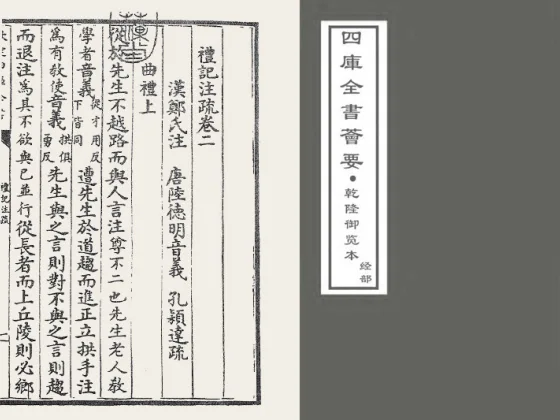 禮記注疏卷二
漢鄭氏注 唐陸德明音義 孔穎達疏
曲禮上
從於先生不越路而與人言注尊不二也先生老人教
學者音義從才用反下皆同遭先生於道趨而進正立拱手注
為有教使音義拱俱勇反先生與之言則對不與之言則趨
而退注為其不欲與己並行從長者而上丘陵則必鄉
禮記注疏
四庫全書薈要•乾隆御览本
经部